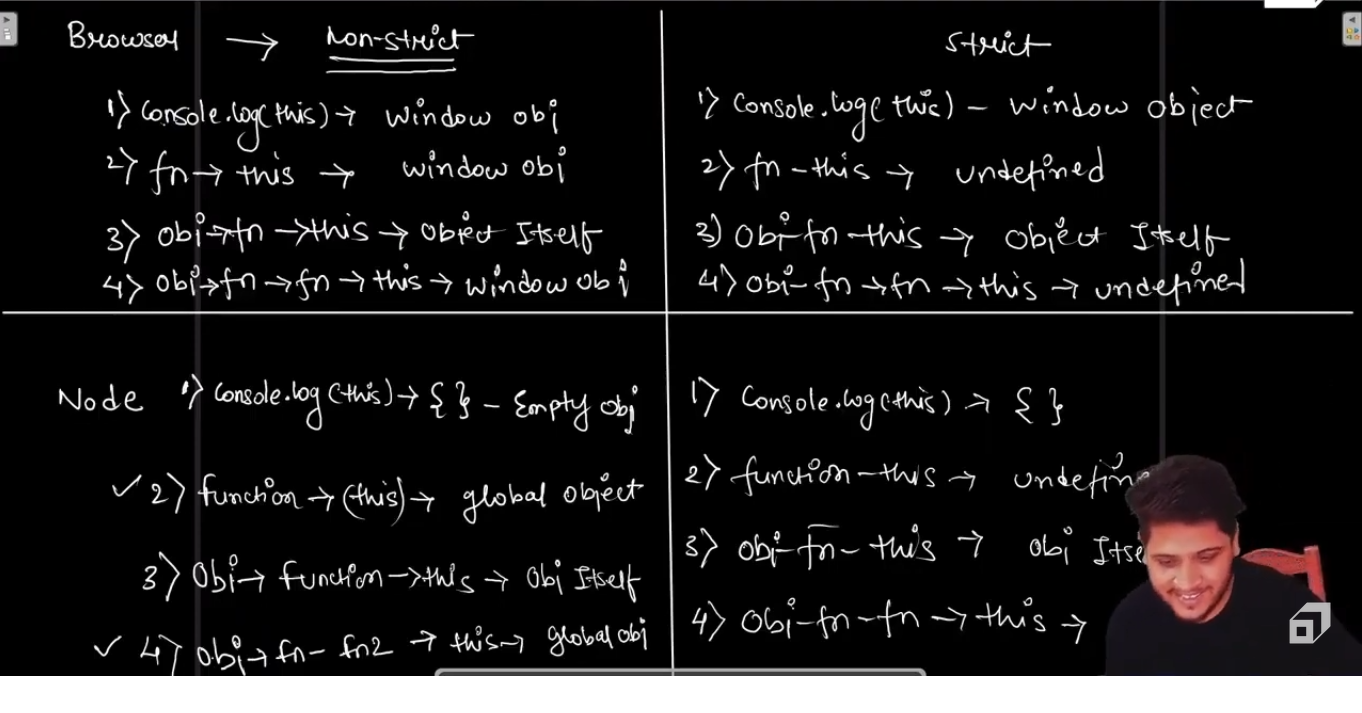 Browser → Non-strict
1) Console.log(this) → window obj
2) fn → this → window obj
3) obj → fn → this → object Itself
4) obj → fn → fn → this → window obj
Strict
1) Console.log(this) - window object
2) fn - this → undefined
3) Obj - fn - this → Object Itself
4) obj - fn → fn → this → undefined
Node 1) Console.log(this) → { } - Empty obj
✓ 2) function → (this) → global object
3) Obj → function → this → Obj Itself
✓ 4) obj → fn - fn2 → this → global obj
1) Console.log(this) → { }
2) function - this → undefine
3) obj - fn - this → obj Itse
4) Obj - fn - fn → this →